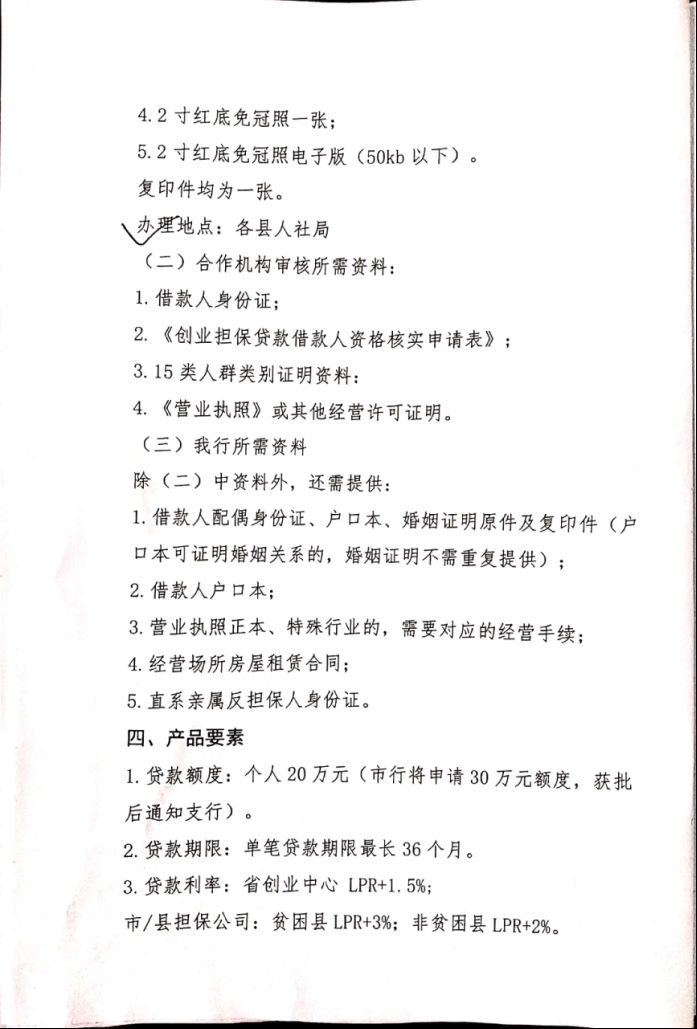 4. 2 寸红底免冠照一张；
5. 2 寸红底免冠照电子版（50kb 以下）。
复印件均为一张。
办理地点：各县人社局
（二）合作机构审核所需资料：
1. 借款人身份证；
2. 《创业担保贷款借款人资格核实申请表》；
3. 15 类人群类别证明资料：
4. 《营业执照》或其他经营许可证明。
（三）我行所需资料
除（二）中资料外，还需提供：
1. 借款人配偶身份证、户口本、婚姻证明原件及复印件（户
口本可证明婚姻关系的，婚姻证明不需重复提供）；
2. 借款人户口本；
3. 营业执照正本、特殊行业的，需要对应的经营手续；
4. 经营场所房屋租赁合同；
5. 直系亲属反担保人身份证。
四、产品要素
1. 贷款额度：个人 20 万元（市行将申请 30 万元额度，获批
后通知支行）。
2. 贷款期限：单笔贷款期限最长 36 个月。
3. 贷款利率：省创业中心 LPR+1.5%;
市/县担保公司：贫困县 LPR+3%；非贫困县 LPR+2%。